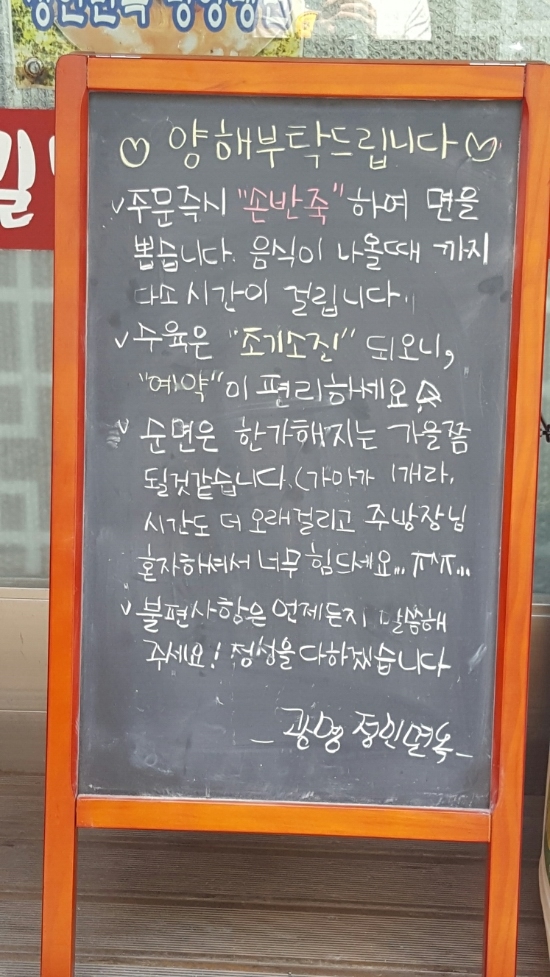 ♡ 양해부탁드립니다 ♡
✓주문즉시 "손반죽"하여 면을
뽑습니다. 음식이 나올때 까지
다소 시간이 걸립니다.
✓수육은 "조기소진" 되오니,
"예약"이 편리하세요
✓ 순면은 한가해지는 가을쯤
될것같습니다.(가마가 1개라,
시간도 더 오래걸리고 주방장님
혼자하셔서 너무 힘드세요... ㅠㅠ...
✓불편사항은 언제든지 말씀해
주세요! 정성을 다하겠습니다
_ 광명 정인면옥_
길